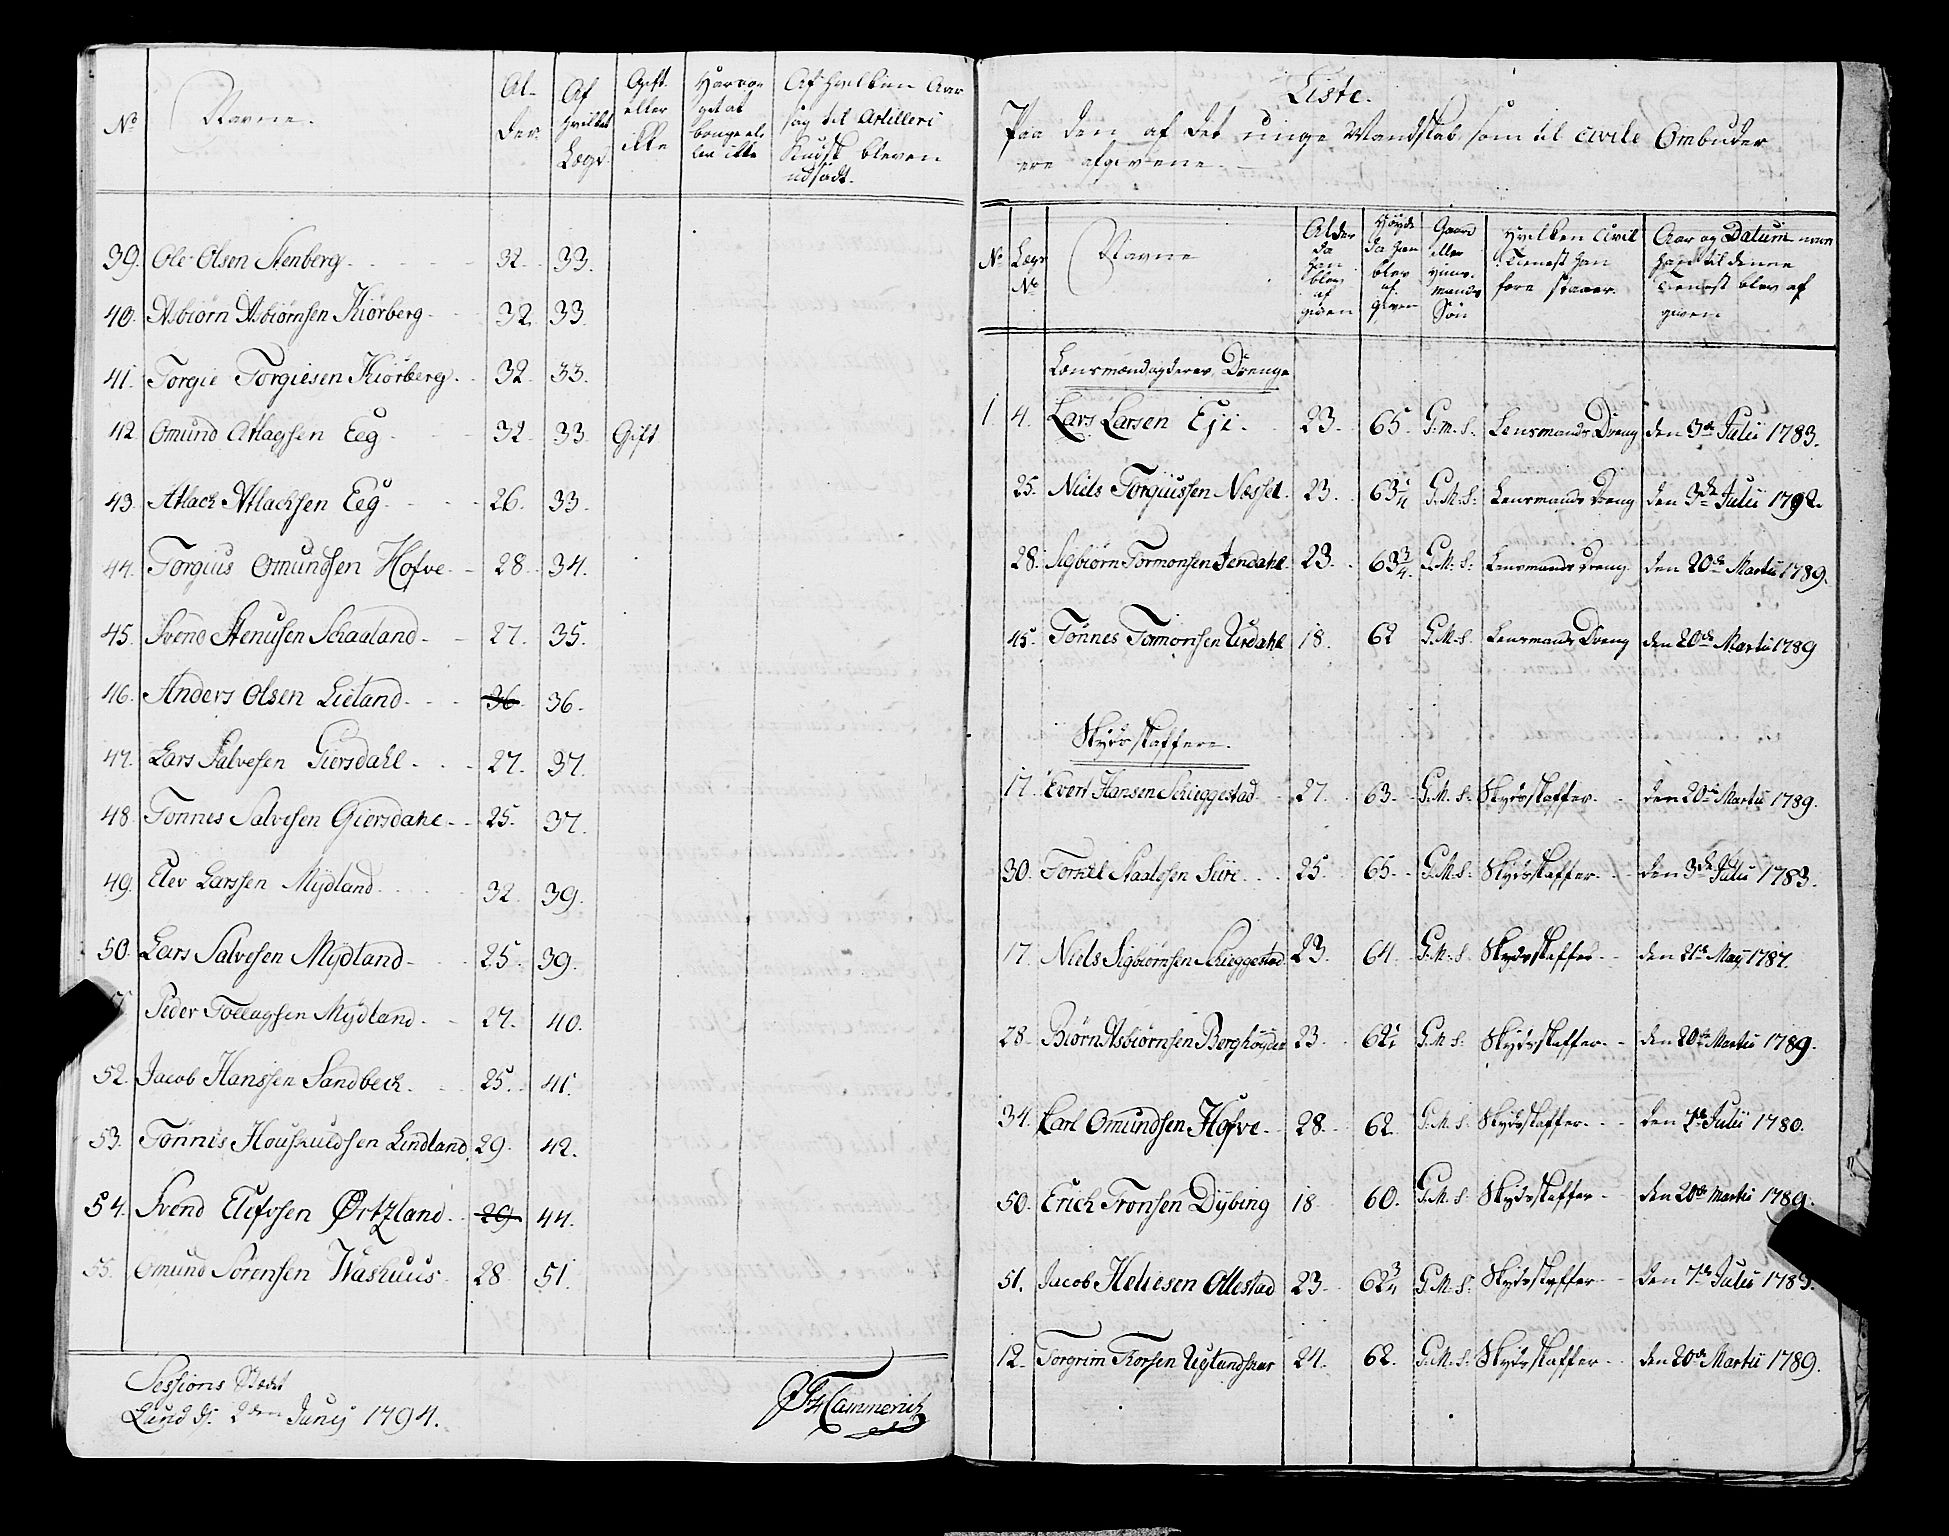 No Navne. Al- der. Af hvilket Lægd Gift eller ikke Af hvilken Aar sag til Artilleri Kudsk bleven udsadt.
39. Ole Olsen Stenberg 32. 33.
40. Asbiørn Asbiørnsen Kiørberg 32. 33.
41. Torgie Torgiesen Kiörberg. 32. 33.
42 Omund Atlagsen Eeg 32. 33. Gift
43. Atlach Atlachsen Eeg 26. 33.
44. Torgius Omundsen Hofve 28. 34.
45. Svend Stenusen Schaaland 27. 35.
46. Anders Olsen Lieland 36 36.
47. Lars Salvesen Giersdahl 27. 37.
48. Tonnes Salvesen Giersdahl 25. 37.
49. Elev Larssen Mydland 32. 39.
50. Lars Salvesen Mydland 25. 39.
Peder Tollagsen Mydland 27. 40.
52. Jacob Hanssen Sandbech 25. 41.
53. Tönnis Houskuldsen Lindland 29. 42.
54. Svend Elefsen Ørtzland 29 44.
55. Omund Sörensen Washuus 28 51.
Sessions Stædet
Lund d. 2den Junij 1794.
Cammerich
Liste.
Paa den af det unge Mandskab som til civile Ombuder
ere afgivene.
No Lægd No Navne Alder da han blev af given Høyde da han blev af given Gaard eller Huus- mands Søn Hvilken Civil Tienest han fore staaer. Aar og Datum naar han til denne Tienest blev af given
Lensmænd og deres Drenge
1 4. Lars Larsen Eje 23. 65. G.M.S. Lensmands Dreng den 3de Julii 1783.
25. Niels Torguissen Næsset 23. 63 1/4 G.M.S. Lensmands Dreng den 3de Julii 1792.
28. Sigbiørn Tormonsen Jendahl 23. 63 3/4. G.M.S. Lensmands Dreng den 20de Martii 1789.
45. Tönnes Tormonsen Urdahl 18. 62 G.M.S. Lensmands Dreng den 20de Martii 1789
Skydsskaffere.
17. Evert Hansen Schieggestad 27. 63. G.M.S. Skydsskaffer den 20de Martii 1789.
30. Torkel Staalesen Siire 25. 65. G.M.S. Skydsskaffer den 3de Julii 1783.
17. Niels Sigbiørnsen Schieggestad 23. 64. G.M.S. Skydsskaffer den 21de May 1787.
28. Biørn Asbiørnsen Berghöyden 23. 62 1/4 G.M.S. Skydsskaffer den 20de Martii 1789.
34. Carl Omundsen Hofve 28. 62. G.M.S. Skydsskaffer den 7de Julii 1780.
50. Erich Tronsen Dybing 18. 60. G.M.S. Skydsskaffer den 20de Martii 1789.
51. Jacob Heliesen Ollestad 23. 62 3/4 G.M.S. Skydsskaffer den 7de Julii 1783.
12. Torgrim Torsen Uglandskar 24. 62. G.M.S. Skydsskaffer den 20de Martii 1789.